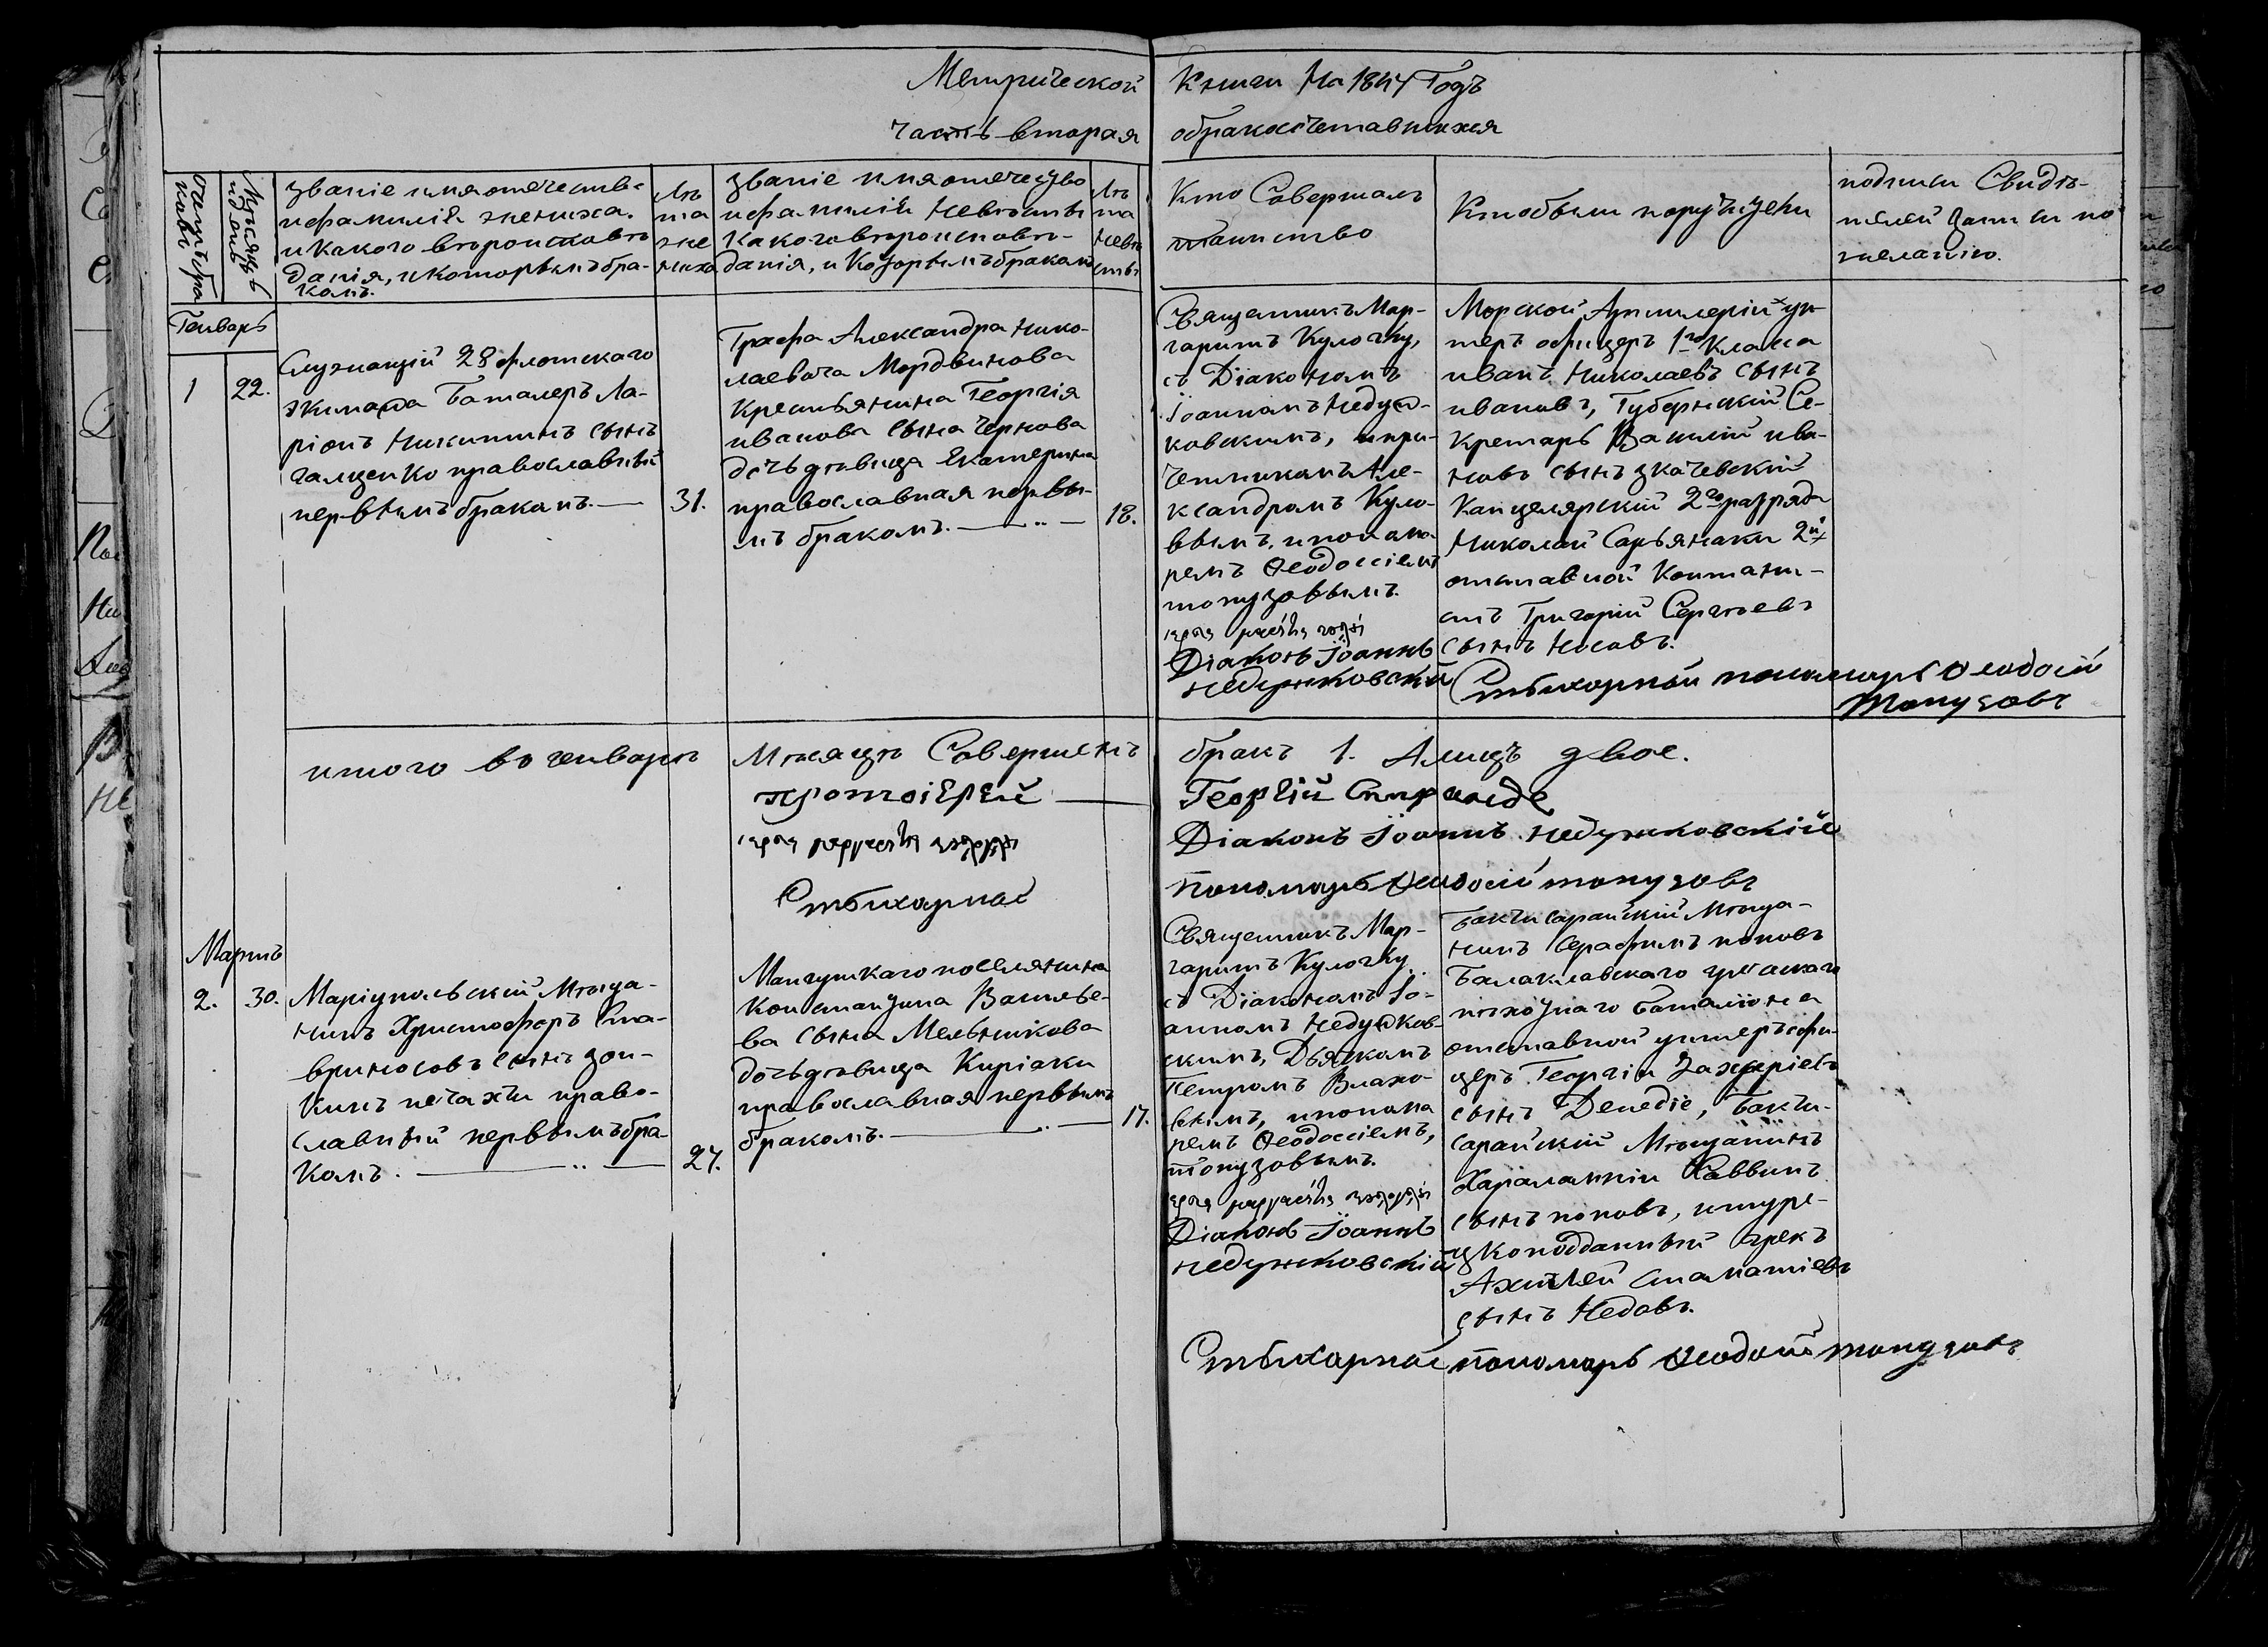 Метрической Книги На 1847 Годъ
часть вторая о бракосочетавшихся
счетъ бра
ковъ
Мѣсяцъ
и день
званіе имя отечеств-
и фамилія жениха.
и какого вѣроисповѣ
данія, и которымъ бра-
комъ.
Лѣ
та
же
ниха
званіе имя отечество
и фамилія невѣсты
какого вѣроисповѣ-
данія, и которымъ бракомъ
Лѣ
та
невѣ
сты
Кто Совершалъ
таинство
Кто были поручители
подписи Свидѣ-
телей записи по
желанію.
Генварь
1
22.
Служащій 28 флотскаго
экипажа Баталеръ Ла-
ріонъ Никитинъ сынъ
галценко православный
первымъ бракомъ.
31.
Графа Александра Нико-
лаевича Мордвинова
Крестьянина Георгія
иванова сына Чернова
дочь дѣвица Екатерина
православная первы-
мъ бракомъ.
18.
Священникъ Мар-
гаритъ Кулогжу,
съ Діакономъ
Іоанномъ Недуж-
ковскимъ, и при-
четникомъ Але-
ксандромъ Куло-
вымъ, и понома-
ремъ Ѳеодосіемъ
топузовымъ.
Діаконъ Іоаннъ
Недужковскій
Морской Артилеріи ун-
теръ офицеръ 1го Класса
иванъ Николаевъ сынъ
ивановъ, Губернскій Се-
кретарь Василій ива-
новъ сынъ
Канцелярскій 2го разряда
Николай 2й
отставной Коптенар-
сынъ Григорій Сергѣевъ
сынъ Носовъ.
Стихарный пономарь Ѳеодосій
Топузовъ
итого въ генварѣ Мѣсяцѣ Совершенъ бракъ 1. А лицъ двое.
протоіерей Георгій
Діаконъ Іоаннъ Недужковскій
Стихарный пономарь Ѳеодосій топузовъ
Мартъ
2.
30.
Маріупольскій Мѣща-
нинъ Христофоръ Ста-
вриносовъ сынъ
православ-
славный первымъ бра-
комъ.
27.
Мангушскаго поселянина
Константина Василье-
ва сына Мельникова
дочь дѣвица Киріаки
православная первымъ
бракомъ.
17.
Священникъ Мар-
гаритъ Кулогжу
съ Діакономъ Іо-
анномъ Недужков-
скимъ, Дьячкомъ
Петромъ Влахо-
вымъ, и понома
ремъ Ѳеодосіемъ,
топузовымъ.
Діаконъ Іоаннъ
Недужковскій
Бакчисарайскій Мѣща-
нинъ Серафимъ поповъ
Балаклавскаго греческаго
пѣхотнаго баталіона
отставной унтеръ офи-
церъ Георгій Захаріевъ
сынъ, Бакчи-
сарайскій Мѣщанинъ
Харалампій Саввинъ
сынъ поповъ, и туре-
цкоподданный грекъ
Ахиллей Стаматіевъ
сынъ Недовъ.
Стихарный пономарь Ѳеодосій топузовъ